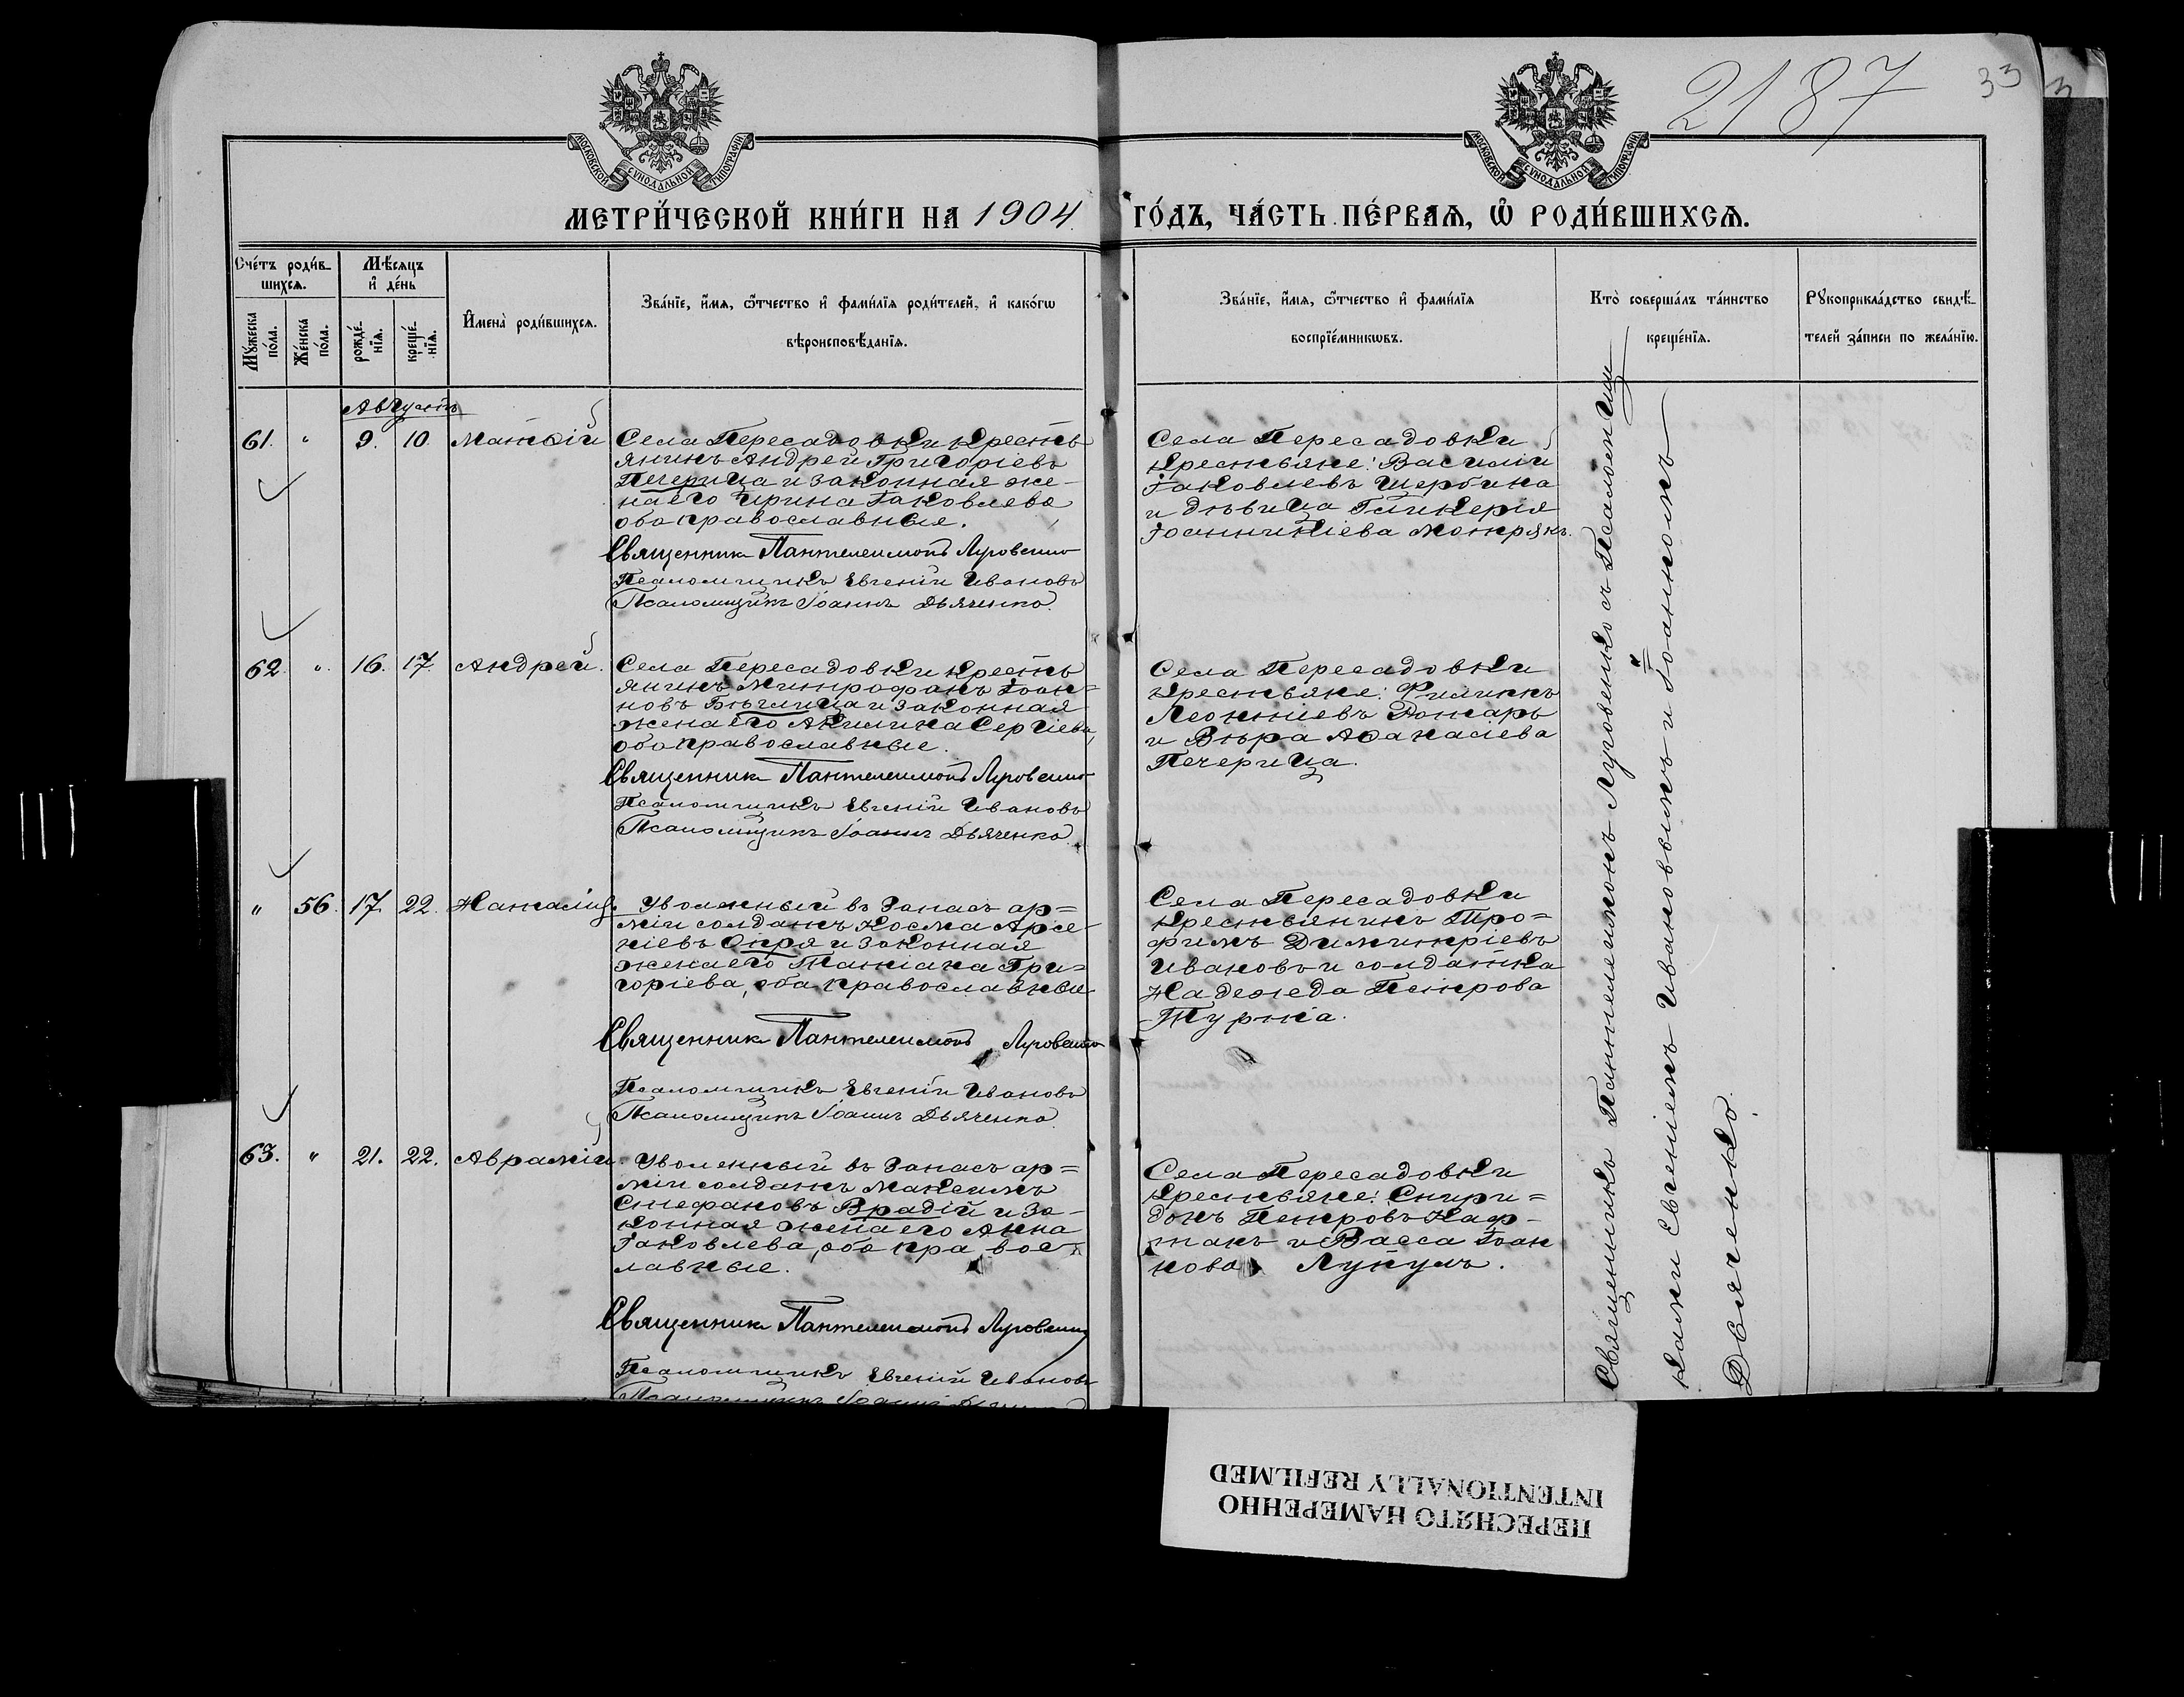 2187
33
МОСКОВСКОЙ СѴНОДАЛЬНОЙ ТИПОГРАФІИ
МОСКОВСКОЙ СѴНОДАЛЬНОЙ ТИПОГРАФІИ
МЕТРИ́ЧЕСКОЙ КНИ́ГИ НА 1904
ГО́ДЪ, ЧА́СТЬ ПЕ́РВАЯ, Ѿ РОДИ́ВШИХСЯ.
Сче́тъ роди́в-
шихся.
Мꙋ́жеска
по́ла.
Же́нска
по́ла.
Мѣ́сяцъ
и҆ де́нь
рожде́-
нїя.
креще́-
нїя.
И҆мена̀ роди́вшихся.
Зва́нїе, и҆́мя, ѻ҆́тчество и҆ фами́лїя роди́телей, и҆ како́гѡ
вѣроисповѣ́данїя.
Зва́нїе, и҆́мя, ѻ҆́тчество и҆ фами́лїя
воспрїе́мникѡвъ.
Кто̀ соверша́лъ та́инство
креще́нїя.
Рꙋкоприкла́дство свидѣ́-
телей за́писи по жела́нїю.
Августъ
61. " 9. 10. Матѳій
Села Пересадовки крестъ
янинъ Андрей Григоріевъ
Печерица и законная же-
на его Ирина Іаковлева
оба православные.
Священникъ Пантелеимонъ Луговенко
Псаломщикъ Евгеній Ивановъ
Псаломщикъ Іоаннъ Дьяченко.
Села Пересадовки
крестьяне: Василій
Іаковлевъ Щербина
и дѣвица Гликерія
Іоанникіева Мокрякъ.
62. " 16. 17. Андрей.
Села Пересадовки кресть
янинъ Митрофанъ Іоан=
новъ Бѣглица и законная
жена его Акилина Сергіева,
оба православные.
Священникъ Пантелеимонъ Луговенко
Псаломщикъ Евгеній Ивановъ
Псаломщикъ Іоаннъ Дьяченко.
Села Пересадовки
крестьяне: Филиппъ
Леонтіевъ
и Вѣра Аѳанасіева
Печерица.
" 56. 17. 22. Наталія.
Уволенный въ запасъ ар=
міи солдатъ Косма Арсе-
ніевъ Опря и законная
жена его Татіана Гри=
горіева, оба православные
Священникъ Пантелеимонъ Луговенко
Псаломщикъ Евгеній Ивановъ
Псаломщикъ Іоаннъ Дьяченко.
Села Пересадовки
крестьянинъ Тро=
фимъ Димитріевъ
Ивановъ и солдатка
Надежда Петрова
Туркіа.
63. " 21. 22. Аврамій.
Уволенный въ запасъ ар=
міи солдатъ Максимъ
Стефановъ Врадій и за-
конная жена его Анна
Іаковлева, оба правос-
лавные.
Священникъ Пантелеимонъ Луговенко
Псаломщикъ Евгеній Ивановъ
Псаломщикъ Іоаннъ
Села Пересадовки
крестьяне: Спири=
донъ Петровъ Каф-
танъ и Васса Іоан
нова Лупулъ.
Священникъ Пантелеимонъ Луговенко съ Псаломщи
ками Евгеніемъ Ивановымъ и Іоанномъ
Дьяченко.
ПЕРЕСНЯТО НАМЕРЕННО
INTENTIONALLY REFILMED